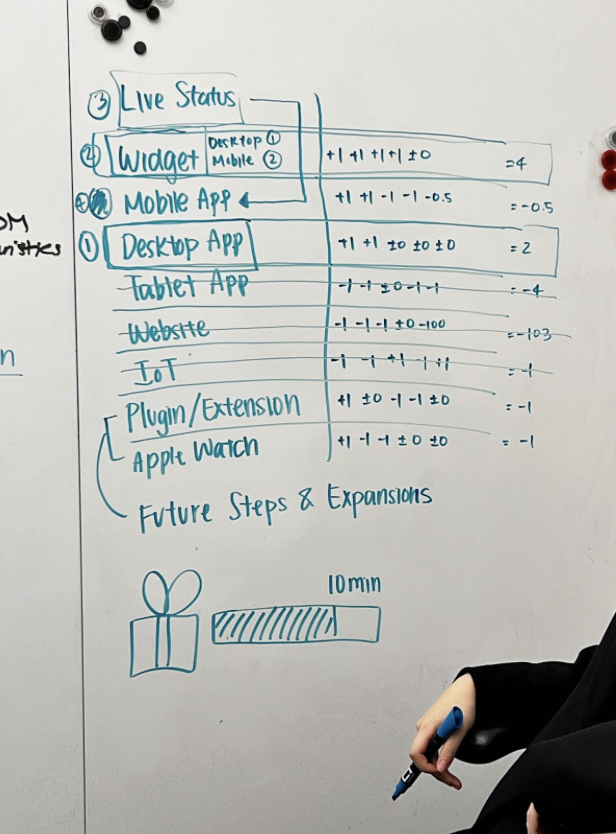 ③ Live Status
② Widget Desktop ① Mobile ② +1 +1 +1 +1 ±0 =4
Mobile App +1 +1 -1 -1 -0.5 =-0.5
① Desktop App +1 +1 ±0 ±0 ±0 =2
Tablet App -1 -1 ±0 -1 -1 =-4
Website -1 -1 -1 ±0 -100 =-103
IoT -1 -1 +1 -1 +1 =-1
Plugin/Extension +1 ±0 -1 -1 ±0 =-1
Apple Watch +1 -1 -1 ±0 ±0 =-1
Future Steps & Expansions
10min